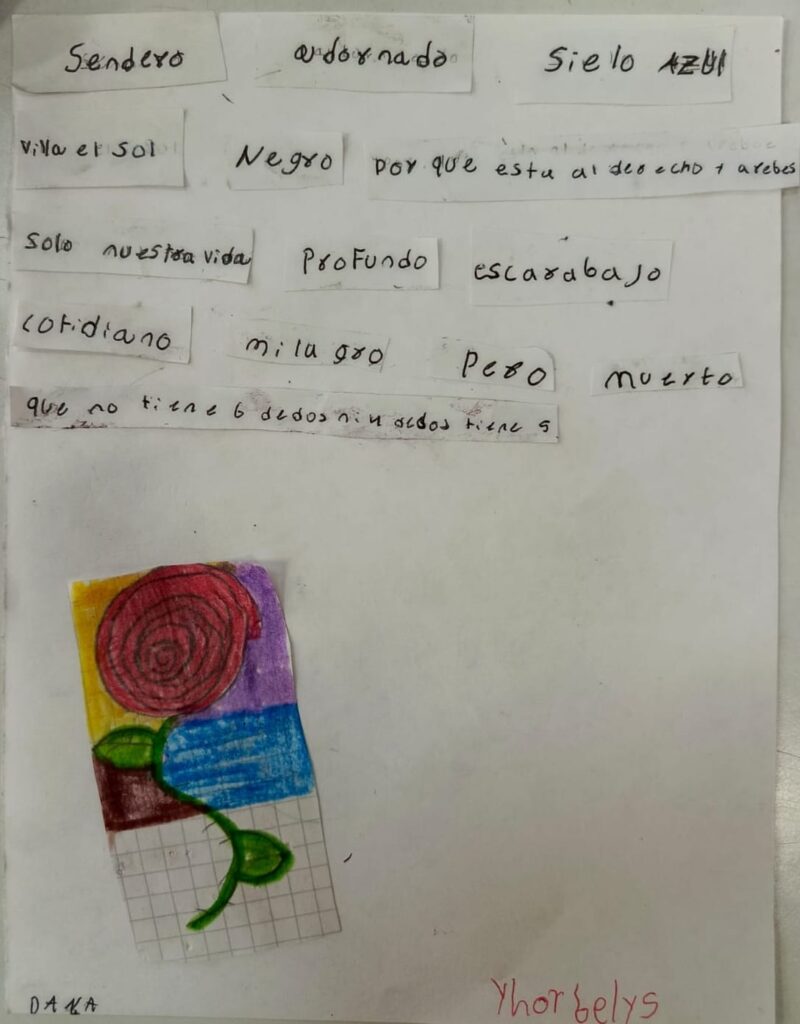 Sendero adornado Sielo AZUl
viva el sol Negro por que esta al derecho y arebes
solo nuestra vida Profundo escarabajo
cotidiano milagro Pero muerto
que no tiene 6 dedos ni 4 dedos tiene 5
DAKA Yhorbelys